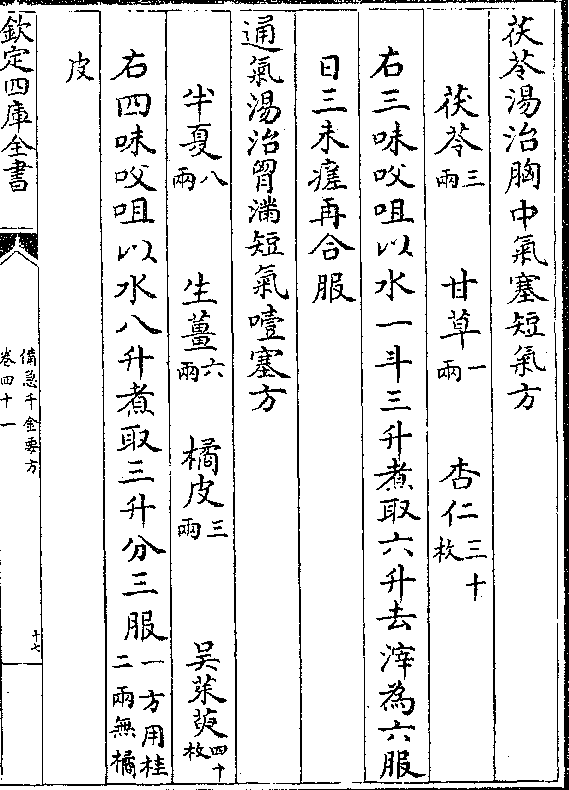 茯苓湯治胸中氣塞短氣方
茯苓三兩 甘草一兩 杏仁三十枚
右三味㕮咀以水一斗三升煮取六升去滓為六服
日三未瘥再合服
通氣湯治胷滿短氣噎塞方
半夏八兩 生薑六兩 橘皮三兩 吳茱萸四十枚
右四味㕮咀以水八升煮取三升分三服一方用桂二兩無橘
皮
欽定四庫全書
備急千金要方
卷四十一
十七